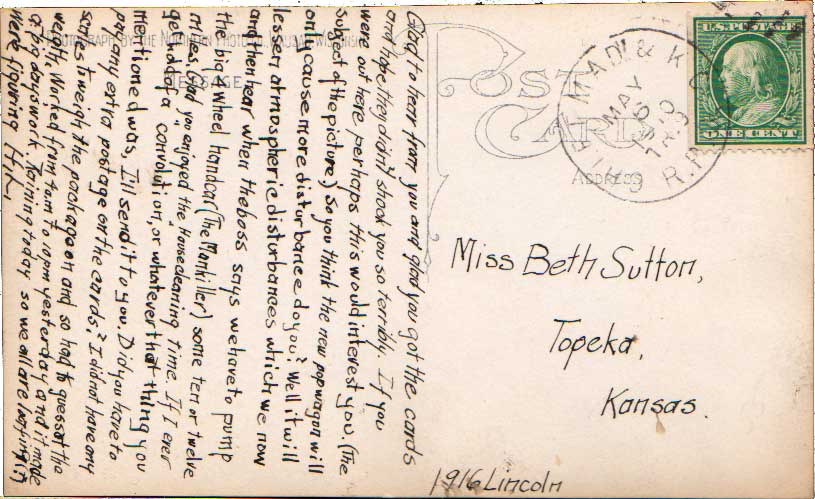 PHOTOGRAPH BY THE NORTHERN PHOTO WAUSAU WISCONSIN
MESSAGE
Glad to hear from you and glad you got the cards
and hope they didn't shock you so terribly. If you
were out here perhaps this would interest you. (The
subject of the picture) So you think the new popwagon will
only cause more disturbance do you? Well it will
lessen atmospheric disturbances which we now
and then hear when the boss says we have to pump
the big 4 wheel handcar (The Mankiller) some ten or twelve
miles. Glad you enjoyed the Housecleaning time. If I ever
get hold of a convolution, or whatever that thing you
mentioned was, I'll send it to you. Did you have to
pay any extra postage on the cards? I did not have any
scales to weigh the package on and so had to guess at the
weight. Worked from 7am to 10pm yesterday and it made
a big days work. Raining today so we all are loafing (?)
Were figuring H.K.
POST CARD
ADDRESS
MADI & K
MAY
6
1910
R.P.O.
U.S. POSTAGE
ONE CENT
Miss Beth Sutton,
Topeka,
Kansas.
1916 Lincoln